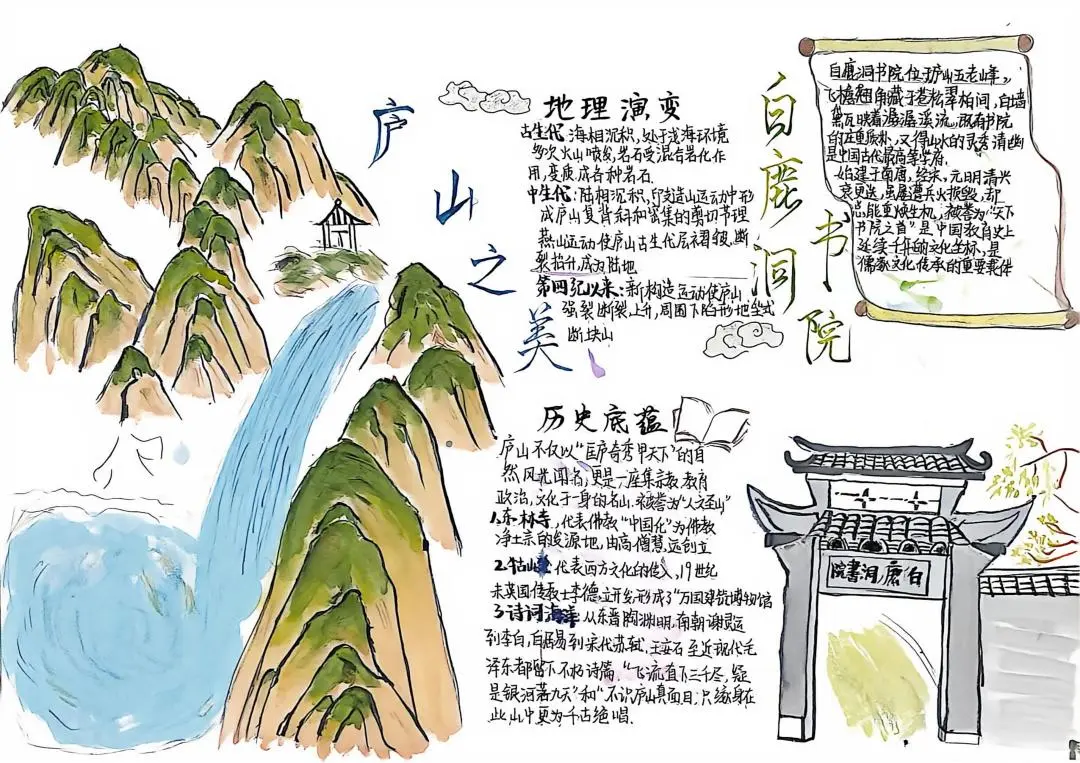 庐山之美
地理演变
古生代:海相沉积,处于浅海环境
多次火山喷发,岩石受混合岩化作
用,变质成各种岩石
中生代:陆相沉积,印支造山运动中形
成庐山复背斜和密集的剪切节理
燕山运动使庐山古生代层褶皱,断
裂抬升,成为陆地
第四纪以来:新构造运动使庐山
强裂断裂上升,周围下陷形地垒式
断块山
历史底蕴
庐山不仅以“匡庐奇秀甲天下”的自
然风光闻名,更是一座集宗教,教育
政治,文化于一身的名山,被誉为“人文圣山”
1.东林寺,代表佛教“中国化”为佛教
净土宗的发源地,由高僧慧远创立
2.牯岭 代表西方文化的传入,19世纪
末英国传教士李德立开发,形成了“万国建筑博物馆
3诗词海洋 从东晋陶渊明,南朝谢灵运
到李白,白居易到宋代苏轼,王安石至近现代毛
泽东都留下不朽诗篇,“飞流直下三千尽,疑
是银河落九天”和“不识庐山真面目,只缘身在
此山中更为千古绝唱.
白鹿洞书院
白鹿洞书院位于庐山五老峰,
飞檐翘角藏于苍松翠柏间,白墙
黑瓦映着潺潺溪流,既有书院
的庄重质朴,又得山水的灵秀清幽
是中国古代最高等学府.
始建于南唐,经宋,元日月清兴
衰更迭,虽屡遭兵火损毁,却
总能重焕生机,被誉为“天下
书院之首”是中国教育史上
延续千年的文化坐标,是
儒家文化传承的重要载体
白鹿洞書院